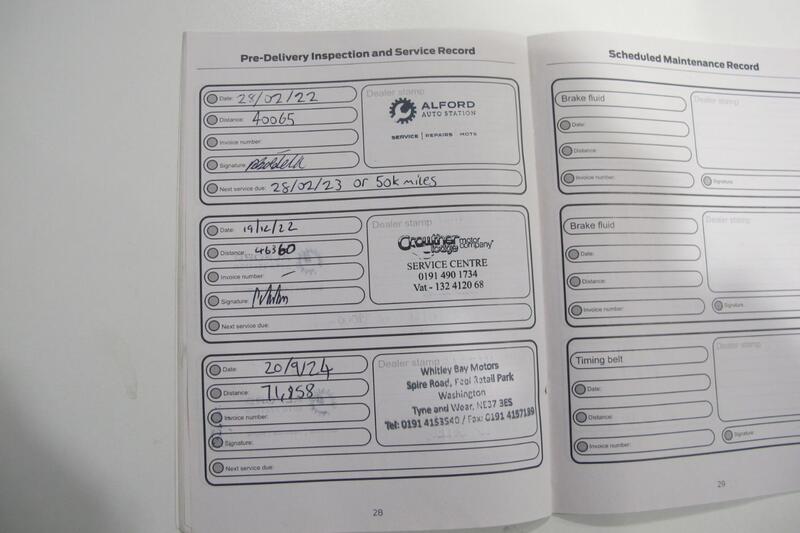 Pre-Delivery Inspection and Service Record
Date: 28/02/22
Distance: 40065
Invoice number:
Signature:
Next service due: 28/02/23 or 50k miles
Dealer stamp
ALFORD
AUTO STATION
SERVICE | REPAIRS | MOTS
Date: 19/12/22
Distance: 46360
Invoice number: –
Signature:
Next service due:
Dealer stamp
Crowther motor
lodge company
SERVICE CENTRE
0191 490 1734
Vat - 132 4120 68
Date: 20/9/24
Distance: 71,858
Invoice number:
Signature:
Next service due:
Dealer stamp
Whitley Bay Motors
Spire Road, Retail Park
Washington
Tyne and Wear, NE37 3ES
Tel: 0191 4153540 / Fax: 0191 4157189
28
Scheduled Maintenance Record
Brake fluid
Date:
Distance:
Invoice number:
Dealer stamp
Signature:
Brake fluid
Date:
Distance:
Invoice number:
Dealer stamp
Signature:
Timing belt
Date:
Distance:
Invoice number:
Dealer stamp
Signature:
29